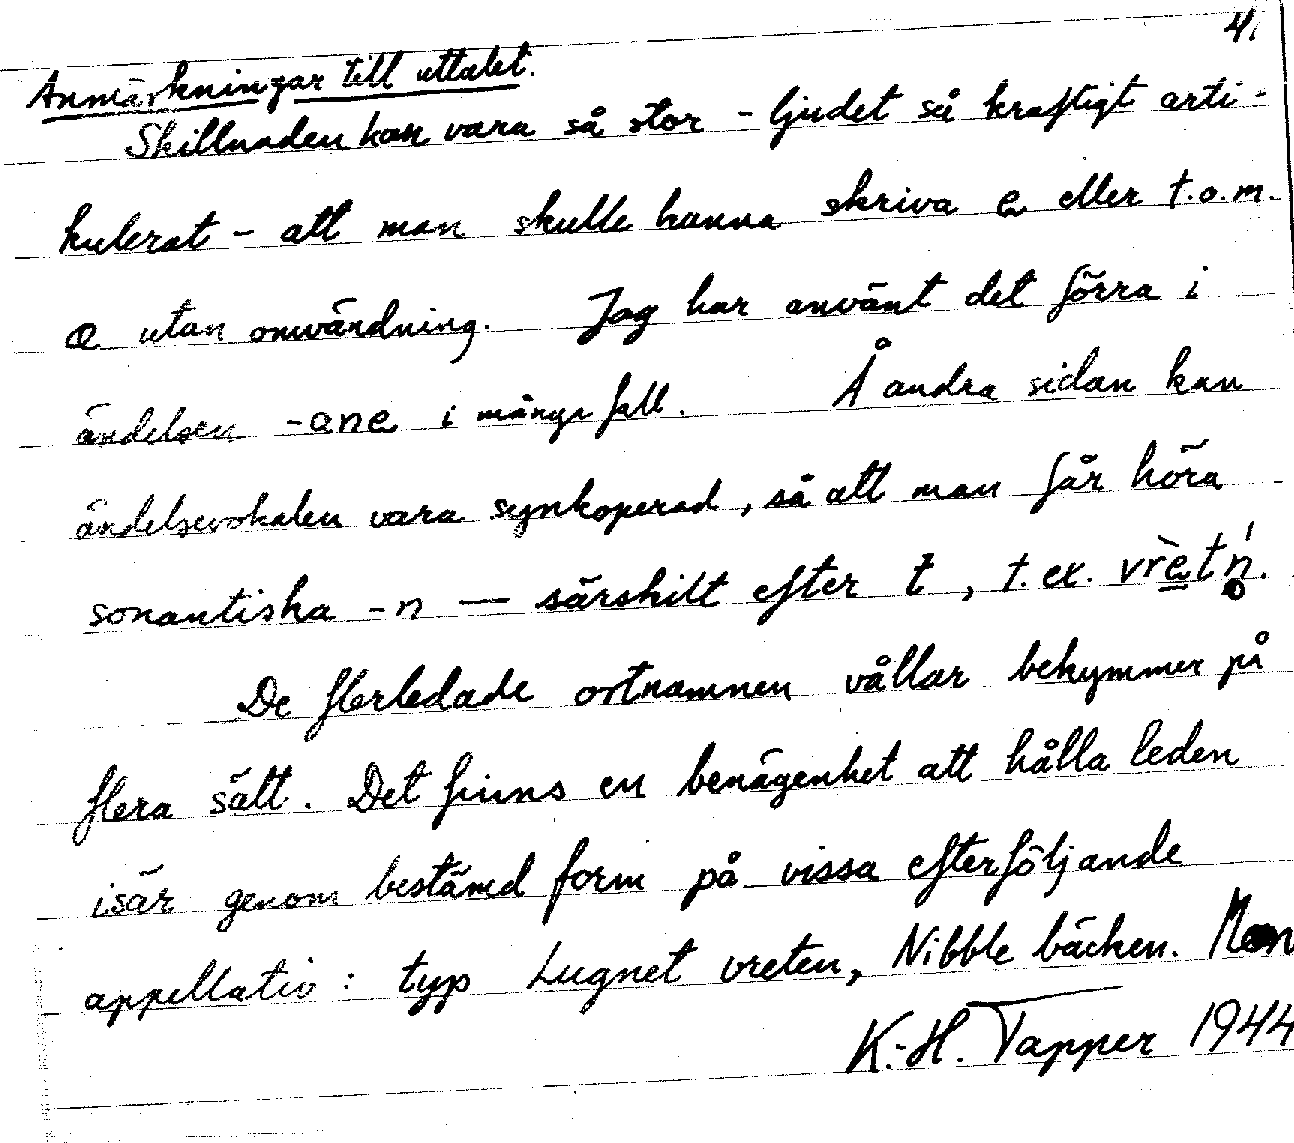 4.
Anmärkningar till uttalet.
Skillnaden kan vara så stor - ljudet så kraftigt arti-
kulerat - att man skulle kunna skriva e eller t.o.m.
a utan omvändning. Jag har använt det förra i
ändelsen -ane i många fall. Å andra sidan kan
ändelsevokalen vara synkoperad, så att man får höra
sonantiska -n — särskilt efter t, t.ex. vrètń̥.
De flerledade ortnamnen vållar bekymmer på
flera sätt. Det finns en benägenhet att hålla leden
isär genom bestämd form på vissa efterföljande
appellativ: typ Lugnet vreten, Nibble bäcken. Men
K.-H. Tapper 1944